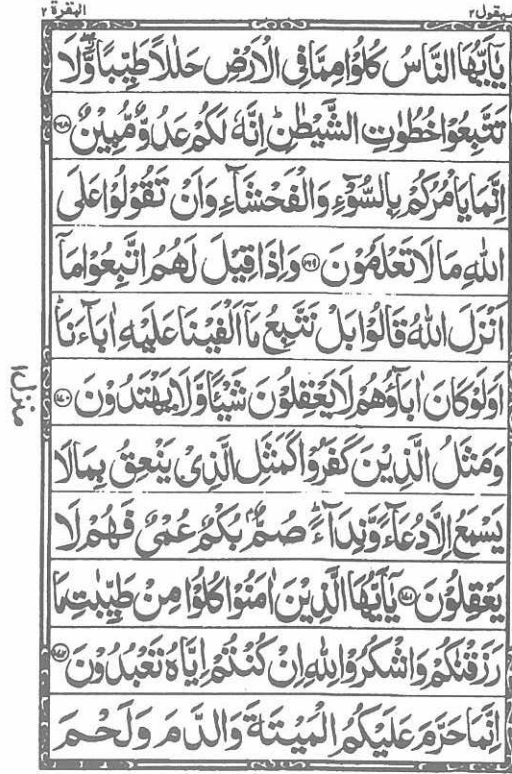 سيقول٢ البقرة ٢
يٰۤاَيُّهَا النَّاسُ كُلُوْا مِمَّا فِى الْاَرْضِ حَلٰلًا طَيِّبًا وَّلَا
تَتَّبِعُوْا خُطُوٰتِ الشَّيْطٰنِ ؕ اِنَّهٗ لَكُمْ عَدُوٌّ مُّبِيْنٌ ﴿۱۶۸﴾
اِنَّمَا يَاْمُرُكُمْ بِالسُّوْٓءِ وَالْفَحْشَآءِ وَاَنْ تَقُوْلُوْا عَلَى
اللّٰهِ مَا لَا تَعْلَمُوْنَ ﴿۱۶۹﴾ وَاِذَا قِيْلَ لَهُمُ اتَّبِعُوْا مَآ
اَنْزَلَ اللّٰهُ قَالُوْا بَلْ نَتَّبِعُ مَآ اَلْفَيْنَا عَلَيْهِ اٰبَآءَنَا ؕ
اَوَلَوْ كَانَ اٰبَآؤُهُمْ لَا يَعْقِلُوْنَ شَيْئًا وَّلَا يَهْتَدُوْنَ ﴿۱۷۰﴾
وَمَثَلُ الَّذِيْنَ كَفَرُوْا كَمَثَلِ الَّذِىْ يَنْعِقُ بِمَا لَا
يَسْمَعُ اِلَّا دُعَآءً وَّنِدَآءً ؕ صُمٌّۢ بُكْمٌ عُمْىٌ فَهُمْ لَا
يَعْقِلُوْنَ ﴿۱۷۱﴾ يٰۤاَيُّهَا الَّذِيْنَ اٰمَنُوْا كُلُوْا مِنْ طَيِّبٰتِ مَا
رَزَقْنٰكُمْ وَاشْكُرُوْا لِلّٰهِ اِنْ كُنْتُمْ اِيَّاهُ تَعْبُدُوْنَ ﴿۱۷۲﴾
اِنَّمَا حَرَّمَ عَلَيْكُمُ الْمَيْتَةَ وَالدَّمَ وَلَحْمَ
منزل۱